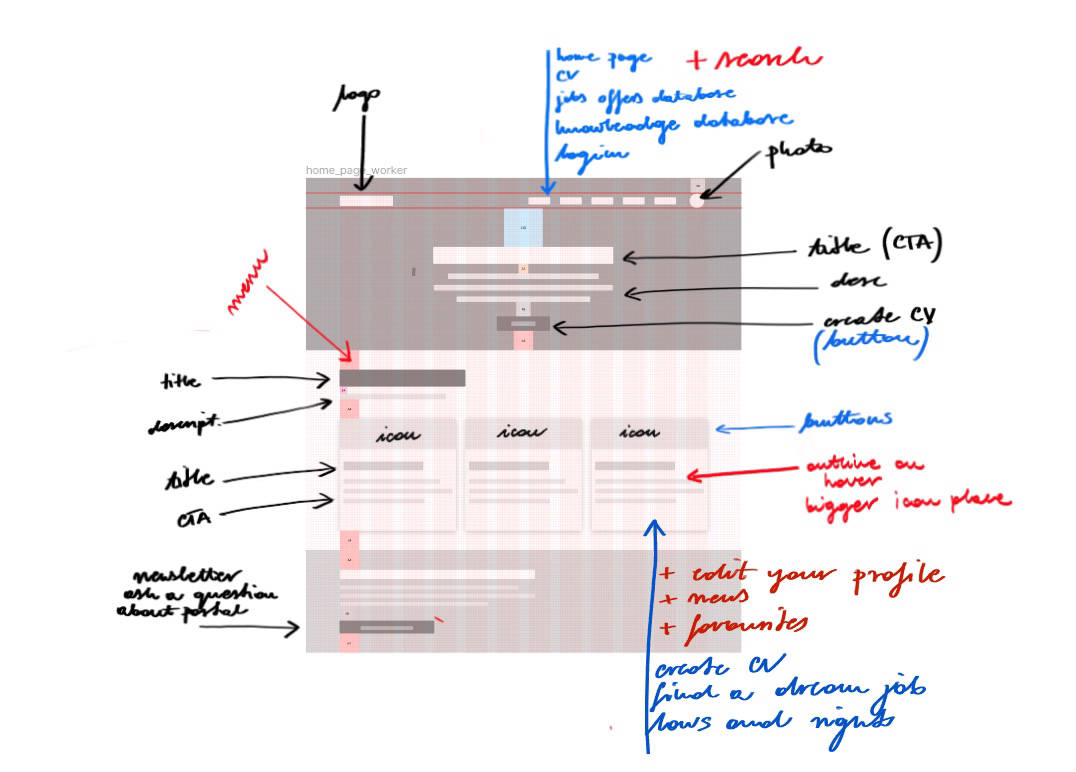 home page
+ search
CV
jobs offers database
knowleadge database
login
logo
photo
home_page_worker
title (CTA)
desc
create CV
(button)
menu
title
descript.
icon
icon
icon
buttons
title
CTA
outline on
hover
bigger icon place
newsletter
ask a question
about portal
+ edit your profile
+ news
+ favourites
create CV
find a dream job
laws and rights